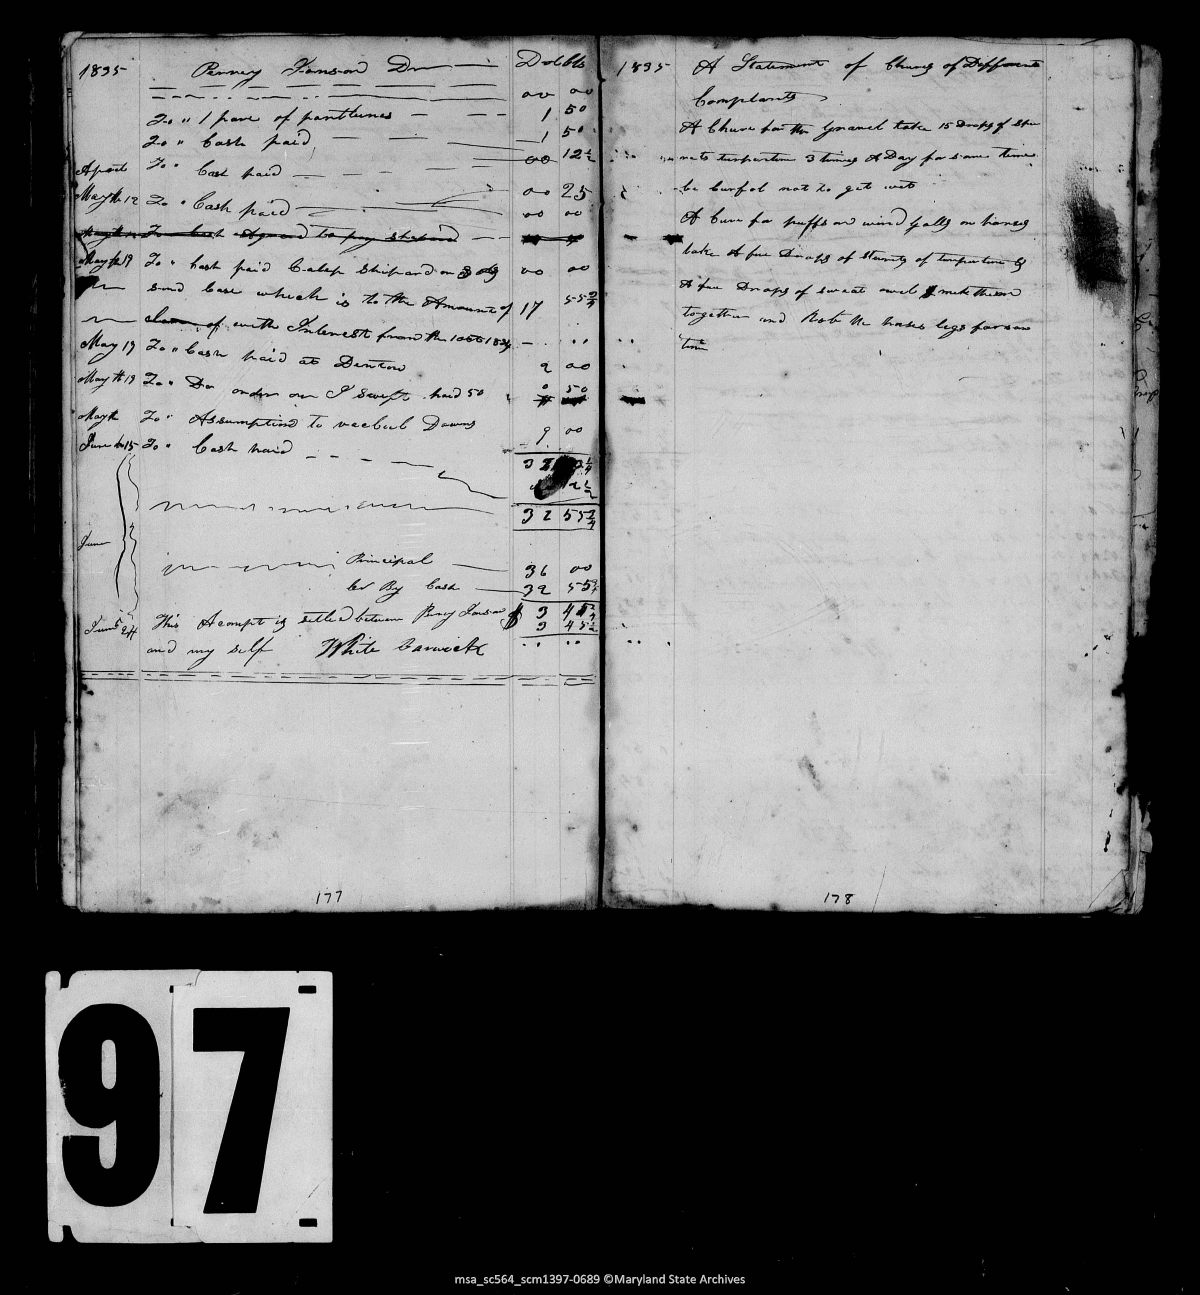 1835 Perrey Jonson Dr Dol Cts
00 00
To " 1 pare of pantluns 1 50
To " Cash paid 1 50
To " Cash paid 00 12½
May th 12 To " Cash paid 00 25
00 00
To Cash Agread to pay shepard
May th 19 To " Cash paid Calep Shipard on
sund Case which is to the Amount of 17 55¾
of with Interest from the
May 19 To " Cash paid at Denton 2 00
May th 19 To " Do order on J Swift paid 50 0 50
May th To " Assumption to Downs 9 00
June th 15 To " Cash paid
32
32 55¾
June
Principal 36 00
Cr By Cash 32 55¾
June This Acompt is settled between Perrey Jonson $ 3 45¼
and my self White Carwick 3 45½
177
1835 A Statement of Chures of Different
Complants
A Chure for the Gravel take 15 Drops of Spe
rets turpentine 3 times A Day for some time
be Curful not to get wet
A Cure for puffs or wind galls on horses
take A fue Drops of turpentine &
A fue Drops of sweat oil & mix them
together and Rob the horses legs for som
time
178
97
msa_sc564_scm1397-0689 ©Maryland State Archives